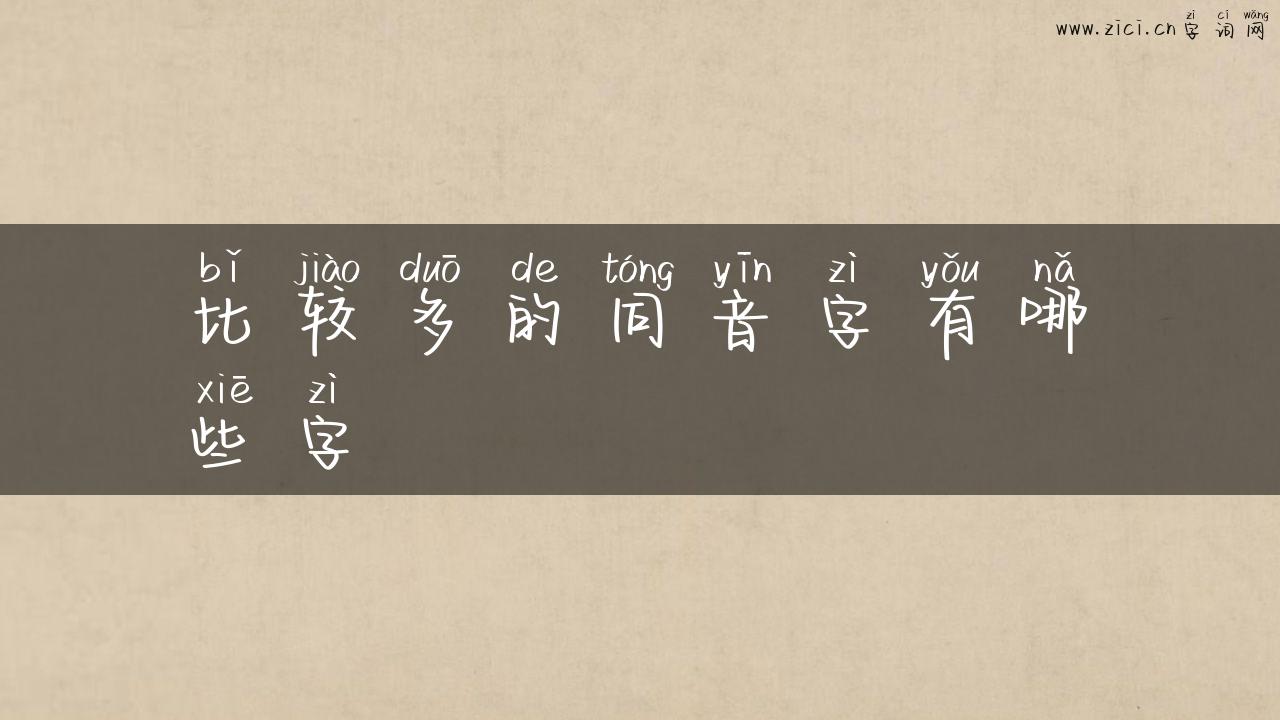 zì cí wǎng
www.zici.cn 字词网
bǐ jiào duō de tóng yīn zì yǒu nǎ
比较多的同音字有哪
xiē zì
些字